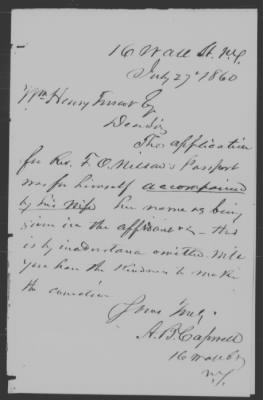 16 Wall St. N.Y.
July 27th 1860
Wm Henry Esq
Dear Sir
The application
for Rev. F. O. Nilson's Passport
was for himself accompanied
by his Wife her name &c being
given in the affidavit &c - this
is by inadvertance omitted Will
you have the kindness to make
the correction
Yours Truly
A. B. Capwell
16 Wall St
N.Y.